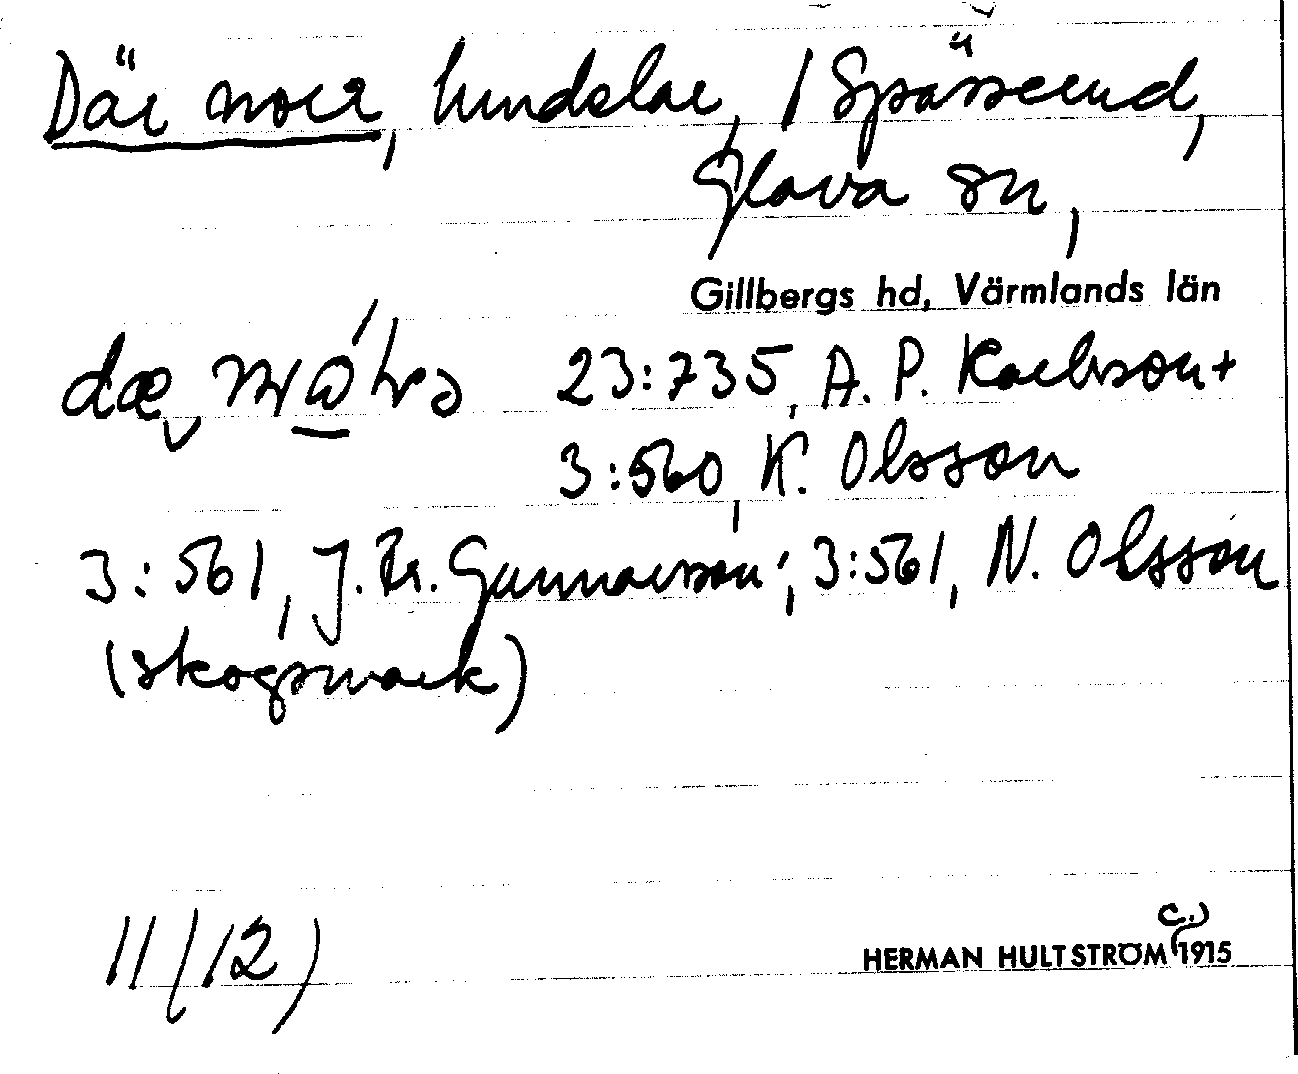 Där norr, hundslar, / Spässerud,
Glava sn,
Gillbergs hd, Värmlands län
23:735, A. P. Karlsson +
3:560, K. Olsson
3:561, J. Fr. Gunnarsson; 3:561, N. Olsson
(skogsmark)
11 (12)
HERMAN HULTSTRÖM (c.) 1915